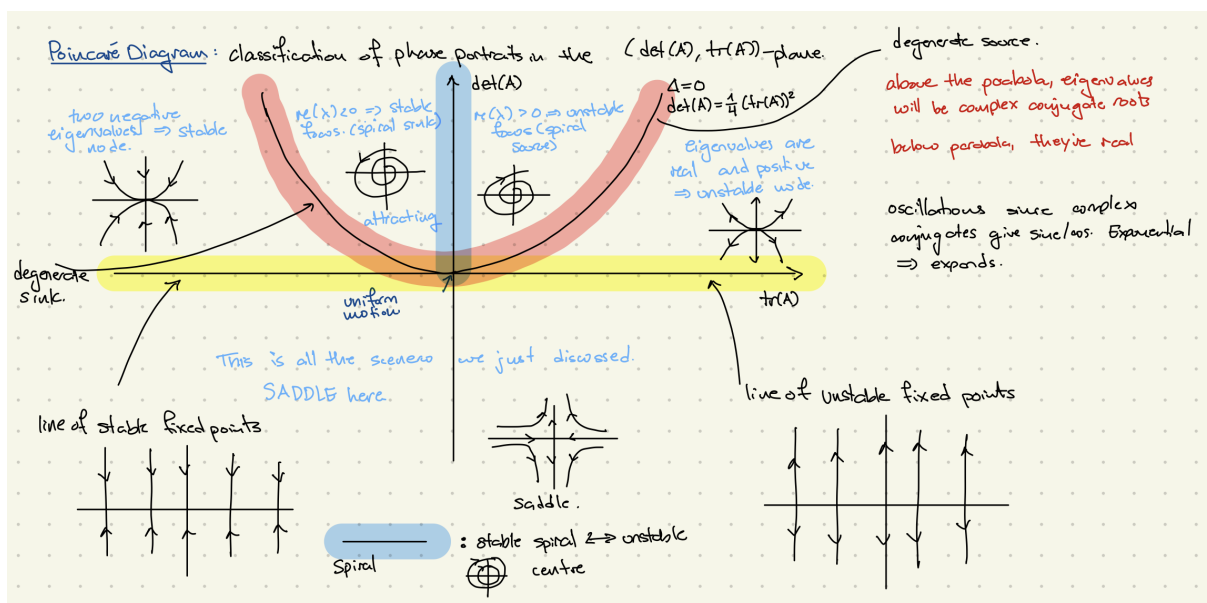 Poincaré Diagram: classification of phase portraits in the (det(A), tr(A))-plane.
det(A)
Δ=0
det(A)=¼(tr(A))²
degenerate source.
above the parabola, eigenvalues
will be complex conjugate roots
below parabola, they're real
oscillations since complex
conjugates give sine/cos. Exponential
⇒ expands.
two negative
eigenvalues ⇒ stable
node.
re(λ)<0 ⇒ stable
focus. (spiral sink)
re(λ)>0 ⇒ unstable
focus (spiral
source)
eigenvalues are
real and positive
⇒ unstable node.
attracting
degenerate
sink.
uniform
motion
tr(A)
This is all the scenero we just discussed.
SADDLE here
line of stable fixed points
line of unstable fixed points
saddle.
: stable spiral ↔ unstable
Spiral
centre